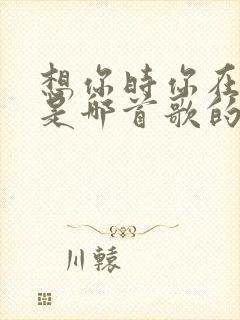 想你时你在
是哪首歌的
川辕